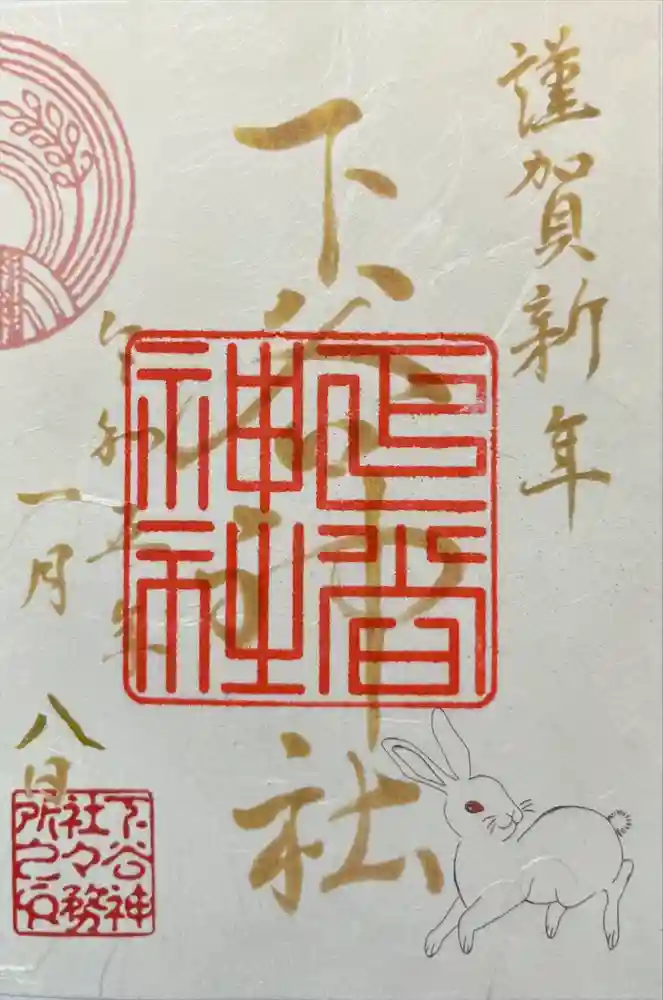 謹賀新年
下谷神社
令和五年
一月八日
下谷神社
下谷神社々務所之印